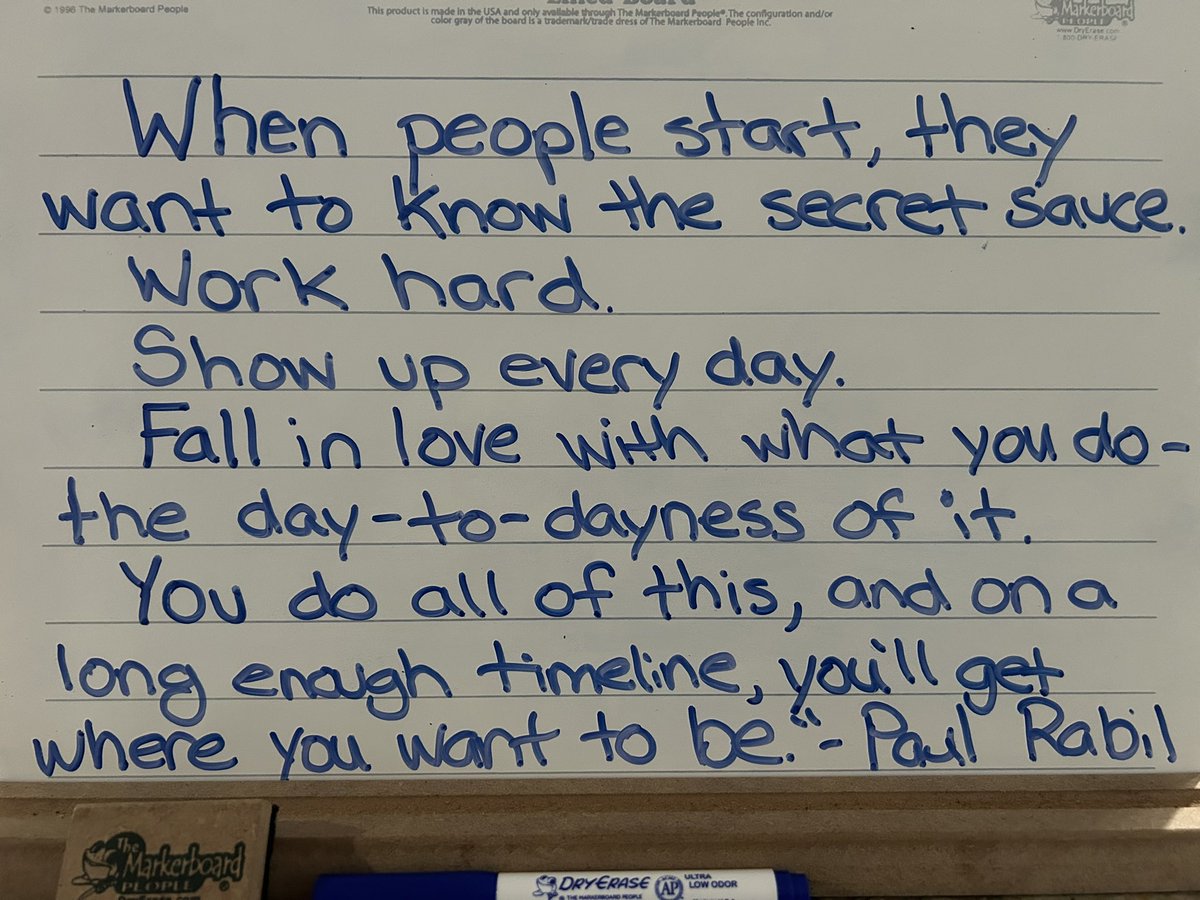 © 1996 The Markerboard People
Lined Board
This product is made in the USA and only available through The Markerboard People®. The configuration and/or
color gray of the board is a trademark/trade dress of The Markerboard People Inc.
Markerboard
PEOPLE
www.DryErase.com
800-DRY-ERASE
When people start, they
want to know the secret sauce.
Work hard.
Show up every day.
Fall in love with what you do-
the day-to-dayness of it.
You do all of this, and on a
long enough timeline, you'll get
where you want to be." - Paul Rabil
The
Markerboard
PEOPLE ®
DryErase.com
DRYERASE AP ULTRA
LOW ODOR
® THE MARKERBOARD PEOPLE